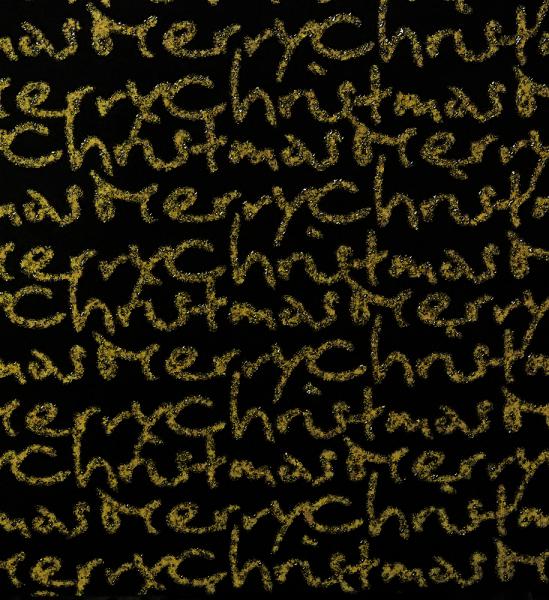 mas Merry Christm
erry Christmas M
Christmas Merry
mas Merry Christm
erry Christmas M
Christmas Merry
mas Merry Christm
erry Christmas M
Christmas Merry
mas Merry Christm
erry Christmas M